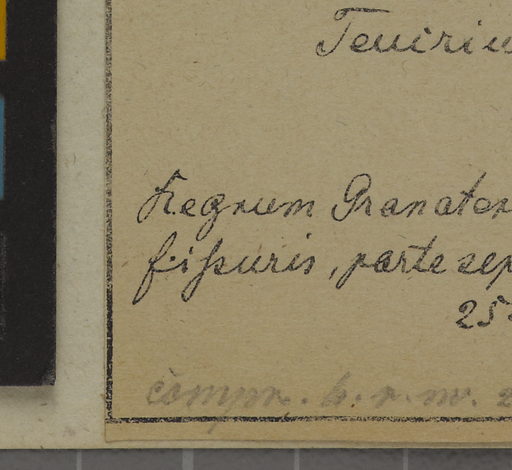 Teuiriu
Regnum Granaten
fissuris, parte sep
25
compr. b. r. m.